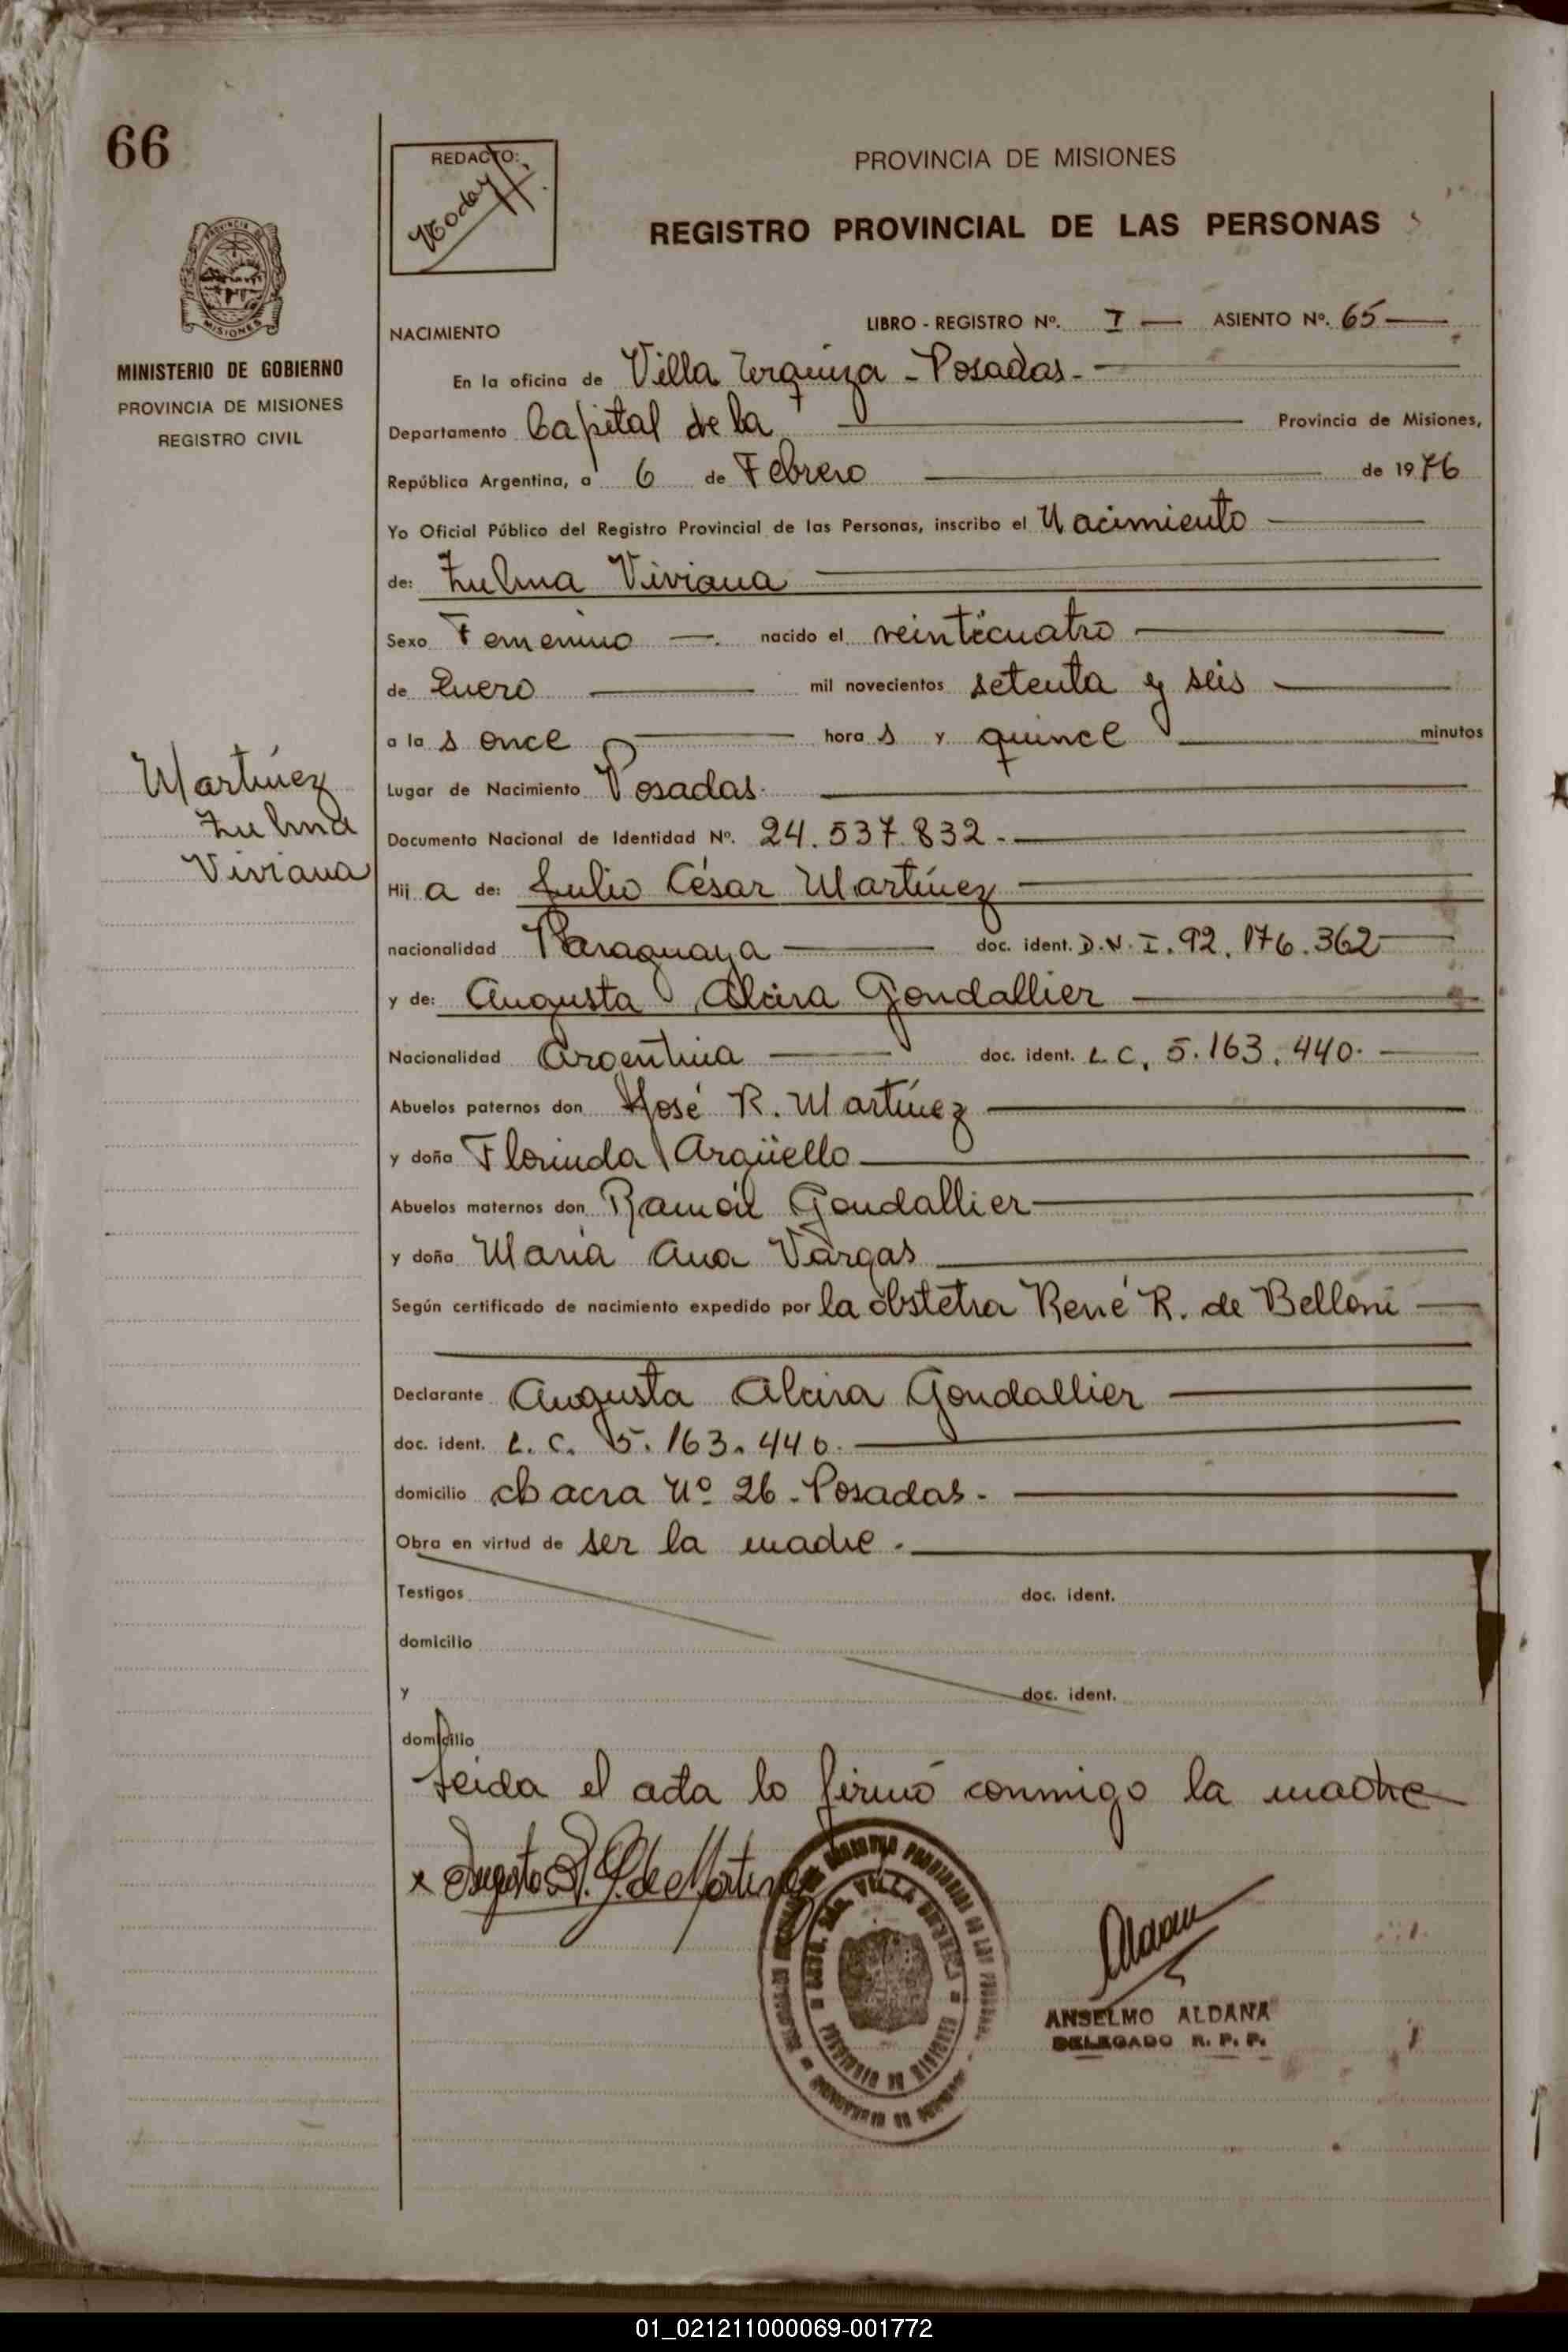 66
REDACTO:
PROVINCIA DE MISIONES
REGISTRO PROVINCIAL DE LAS PERSONAS
MISIONES
MINISTERIO DE GOBIERNO
PROVINCIA DE MISIONES
REGISTRO CIVIL
NACIMIENTO
LIBRO - REGISTRO Nº. I — ASIENTO Nº. 65 —
En la oficina de Villa Urquiza - Posadas. —
Departamento Capital de la — Provincia de Misiones,
República Argentina, a 6 de Febrero — de 1976
Yo Oficial Público del Registro Provincial de las Personas, inscribo el Nacimiento —
de: Zulma Viviana —
Sexo Femenino —. nacido el veinticuatro —
de Enero — mil novecientos setenta y seis —
a las once — horas y quince — minutos
Lugar de Nacimiento Posadas. —
Martínez
Zulma
Viviana
Documento Nacional de Identidad Nº. 24.537.832. —
Hija de: Julio César Martínez —
nacionalidad Paraguaya — doc. ident. D.N.I. 92.176.362 —
y de: Augusta Alcira Gondallier —
Nacionalidad Argentina — doc. ident. L.C. 5.163.440. —
Abuelos paternos don José R. Martínez —
y doña Florinda Argüello —
Abuelos maternos don Ramón Gondallier —
y doña María Ana Vargas —
Según certificado de nacimiento expedido por la obstetra René R. de Belloni —
Declarante Augusta Alcira Gondallier —
doc. ident. L.C. 5.163.440. —
domicilio chacra Nº 26 - Posadas. —
Obra en virtud de ser la madre. —
Testigos doc. ident.
domicilio
y doc. ident.
domicilio
Leida el acta lo firmó conmigo la madre
x Augusta A. G. de Martinez
VILLA URQUIZA
Aldana
ANSELMO ALDANA
DELEGADO R. P. P.
01_021211000069-001772